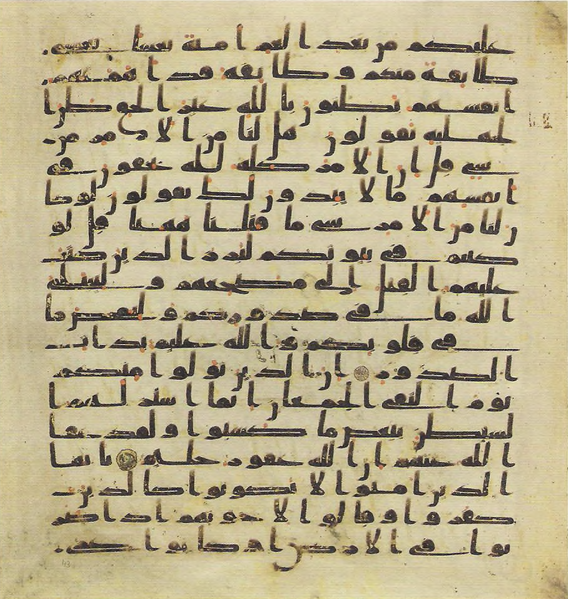 عليكم من بعد الغم امنة نعاسا يغشى
طايفة منكم وطايفة قد اهمتهم
انفسهم يظنون بالله غير الحق ظن ا
لجهلية يقولون هل لنا من الامر من
شي قل ان الامر كله لله يخفون في
انفسهم ما لا يبدون لك يقولون لو كا
ن لنا من الامر شي ما قتلنا ههنا قل لو
كنتم في بيوتكم لبرز الذين كتب
عليهم القتل الى مضجعهم وليبتلي
الله ما في صدوركم وليمحص ما
في قلوبكم والله عليم بذات
الصدور ان الذين تولوا منكم
يوم التقى الجمعان انما استزلهم ا
لشيطن ببعض ما كسبوا ولقد عفا
الله عنهم ان الله غفور حليم يايها
الذين امنوا لا تكونوا كالذين
كفروا وقالوا لاخونهم اذا ضر
بوا في الارض او كانوا غزى